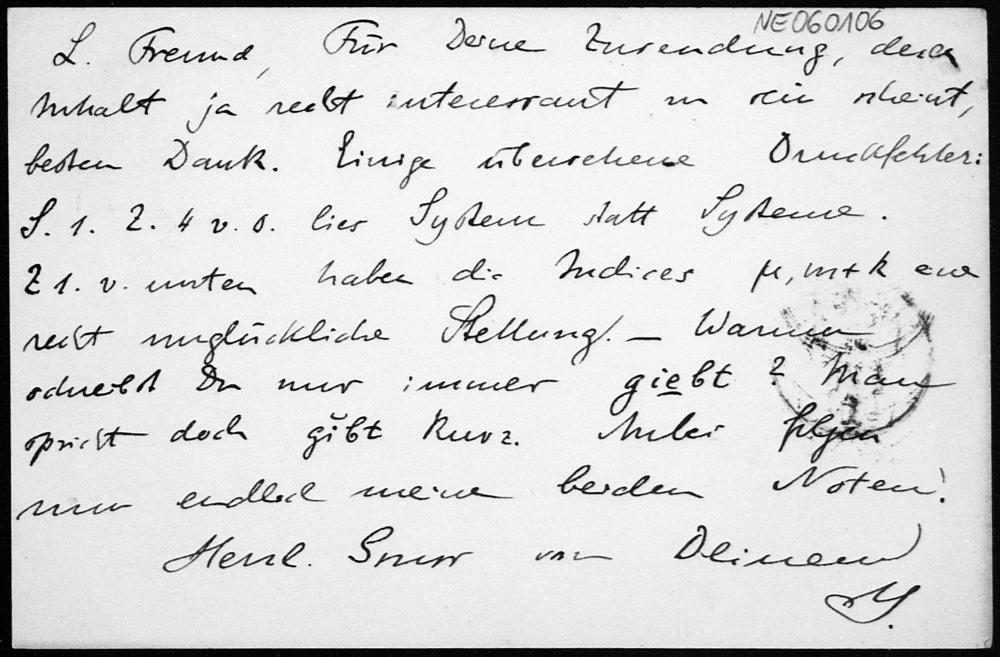 NE060106
L. Freund, Für Deine Zusendung, deren
Inhalt ja recht interessant zu sein scheint,
besten Dank. Einige übersehene Druckfehler:
S. 1. Z. 4 v. o. lies System statt Systeme.
Z 1. v. unten haben die Indices μ, m+k eine
recht unglückliche Stellung. — Warum
schreibst Du nur immer giebt? Man
spricht doch gĭbt kurz. Anbei folgen
nun endlich meine beiden Noten!
Herzl. Gruss von Deinem